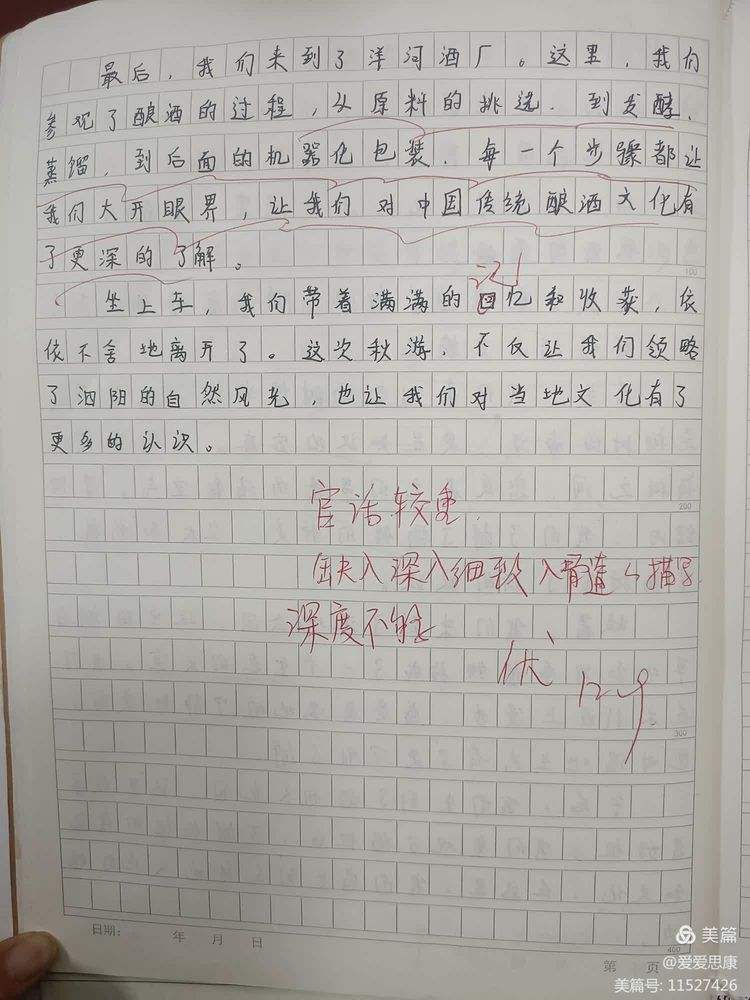 最后，我们来到了洋河酒厂。这里，我们
参观了酿酒的过程，从原料的挑选、到发酵、
蒸馏，到后面的机器化包装，每一个步骤都让
我们大开眼界，让我们对中国传统酿酒文化有
了更深的了解。
坐上车，我们带着满满的回忆和收获，依
记
依不舍地离开了。这次秋游，不仅让我们领略
了泗阳的自然风光，也让我们对当地文化有了
更多的认识。
100
官话较重
200
缺入深入细致入骨描写
深度不够
优
300
日期： 年 月 日
400
第 页
美篇
@爱爱思康
美篇号: 11527426